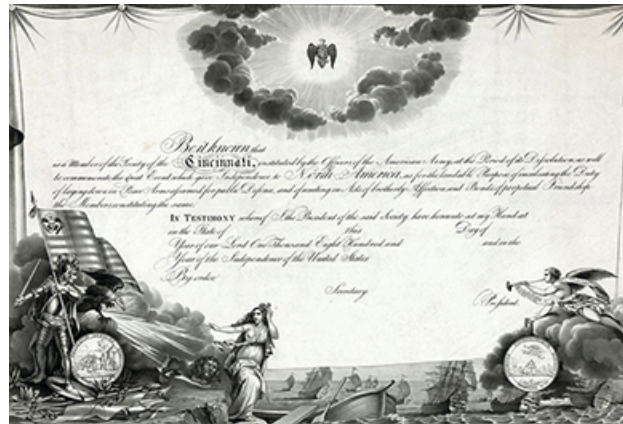 Be it known that
is a Member of the Society of the Cincinnati, instituted by the Officers of the American Army, at the Period of its Dissolution, as well
to commemorate the Great Event which gave Independence to North America, as for the laudable Purpose of inculcating the Duty
of laying down in Peace Arms assumed for public Defence, and of uniting in Acts of brotherly Affection, and Bonds of perpetual Friendship
the Members constituting the same.
In Testimony whereof I the President of the said Society, have hereunto set my Hand at
in the State of this Day of
Year of our Lord One Thousand Eight Hundred and and in the
Year of the Independence of the United States
By order,
Secretary.
President.